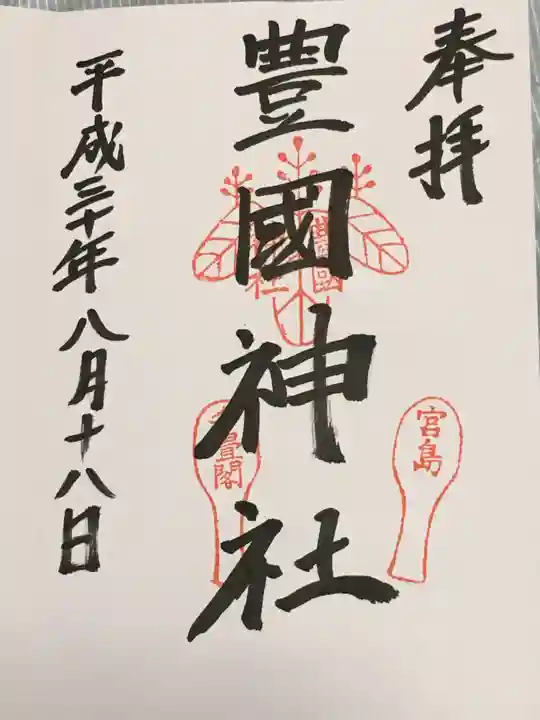 奉拝
豊國神社
豊國
社
宮島
畳閣
平成三十年八月十八日